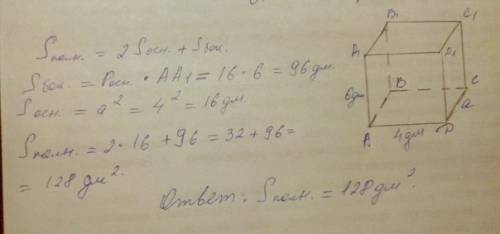 Sполн. = 2Sосн. + Sбок.
Sбок. = Pосн. • AA1 = 16 • 6 = 96 дм.
Sосн. = a² = 4² = 16 дм.
Sполн. = 2 • 16 + 96 = 32 + 96 =
= 128 дм².
Ответ: Sполн. = 128 дм².
B1 C1
A1 D1
6дм B C
a
A 4дм D